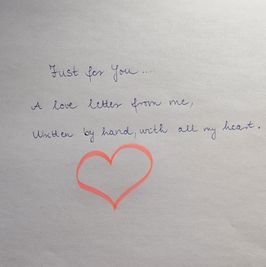 Just for You ...
A love letter from me,
Written by hand, with all my heart.